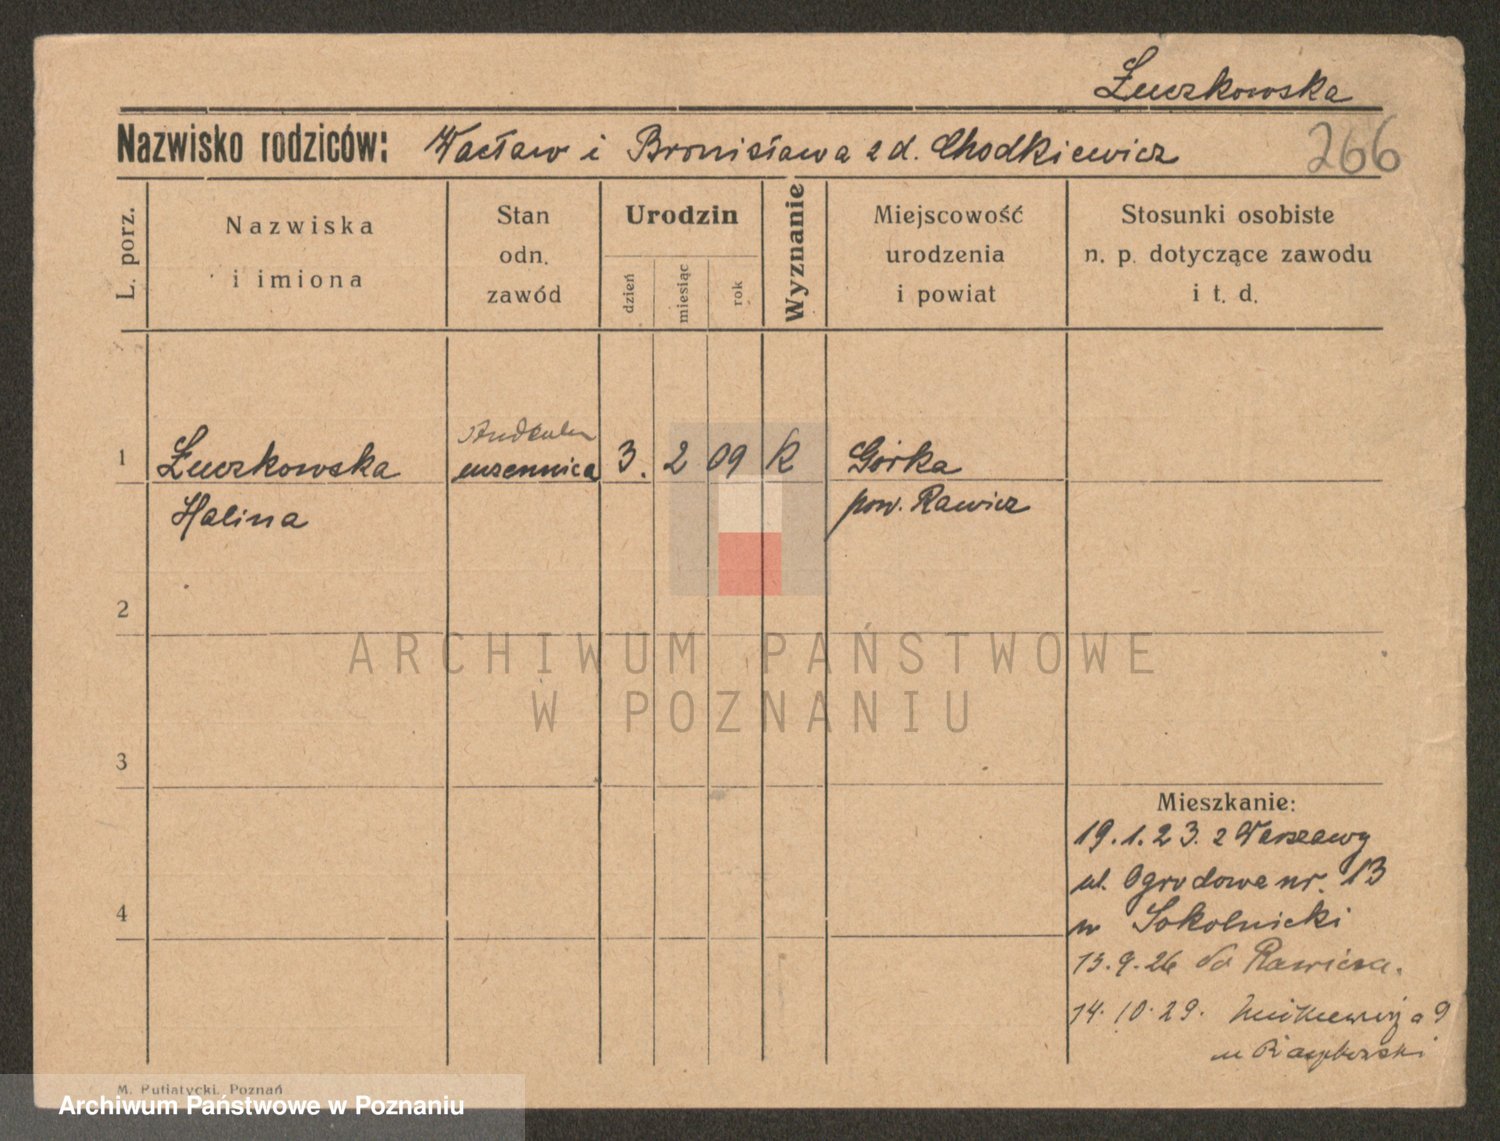 Łuczkowska
Nazwisko rodziców: Wacław i Bronisława z d. Chodkiewicz
266
L. porz.
Nazwiska
i imiona
Stan
odn.
zawód
Urodzin
dzień
miesiąc
rok
Wyznanie
Miejscowość
urodzenia
i powiat
Stosunki osobiste
n. p. dotyczące zawodu
i t. d.
1 Łuczkowska uczennica 3. 2 09 k Górka
Halina pow. Rawicz
2
3
4
Mieszkanie:
19.1.23. z Warszawy
ul. Ogrodowa nr. 13
w Sokolnicki
13.9.26 do Rawicza.
14.10.29. 9
M. Putiatycki, Poznań
ARCHIWUM PAŃSTWOWE
W POZNANIU
Archiwum Państwowe w Poznaniu